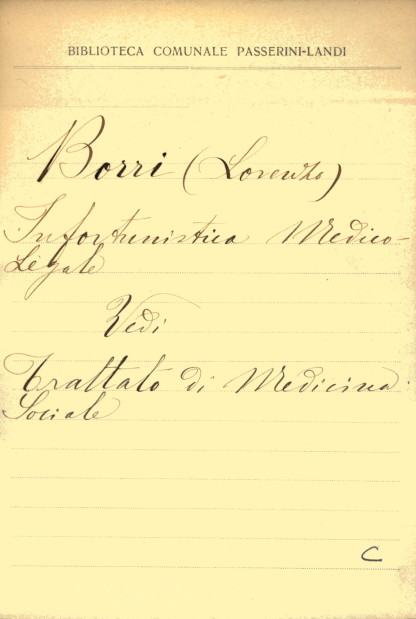 BIBLIOTECA COMUNALE PASSERINI-LANDI
Borri (Lorenzo)
Infortunistica Medico-
Legale
Vedi
Trattato di Medicina
Sociale
C